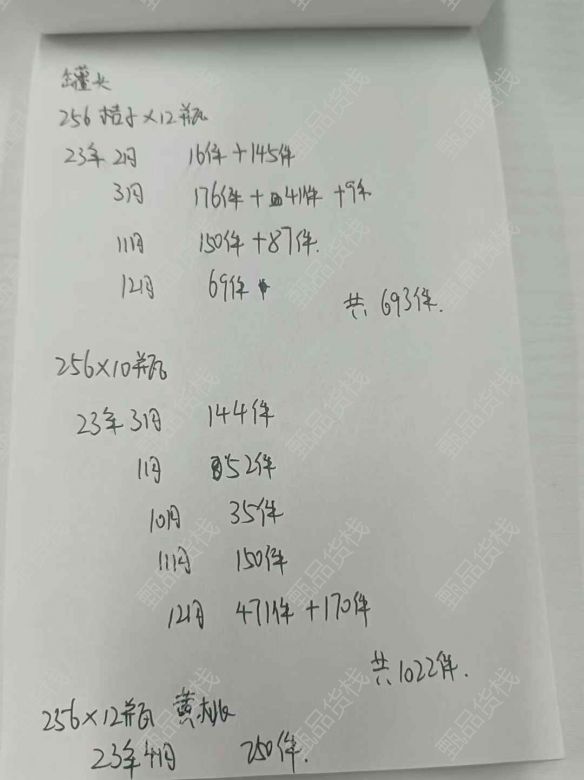 罐头
256桔子×12瓶
23年2月 16件+145件
3月 176件+41件+9件
11月 150件+87件.
12月 69件
共693件.
256×10瓶
23年3月 144件
11月 52件
10月 35件
11月 150件
12月 471件+170件
共1022件.
256×12瓶 黄桃
23年4月 250件.
甄品货栈